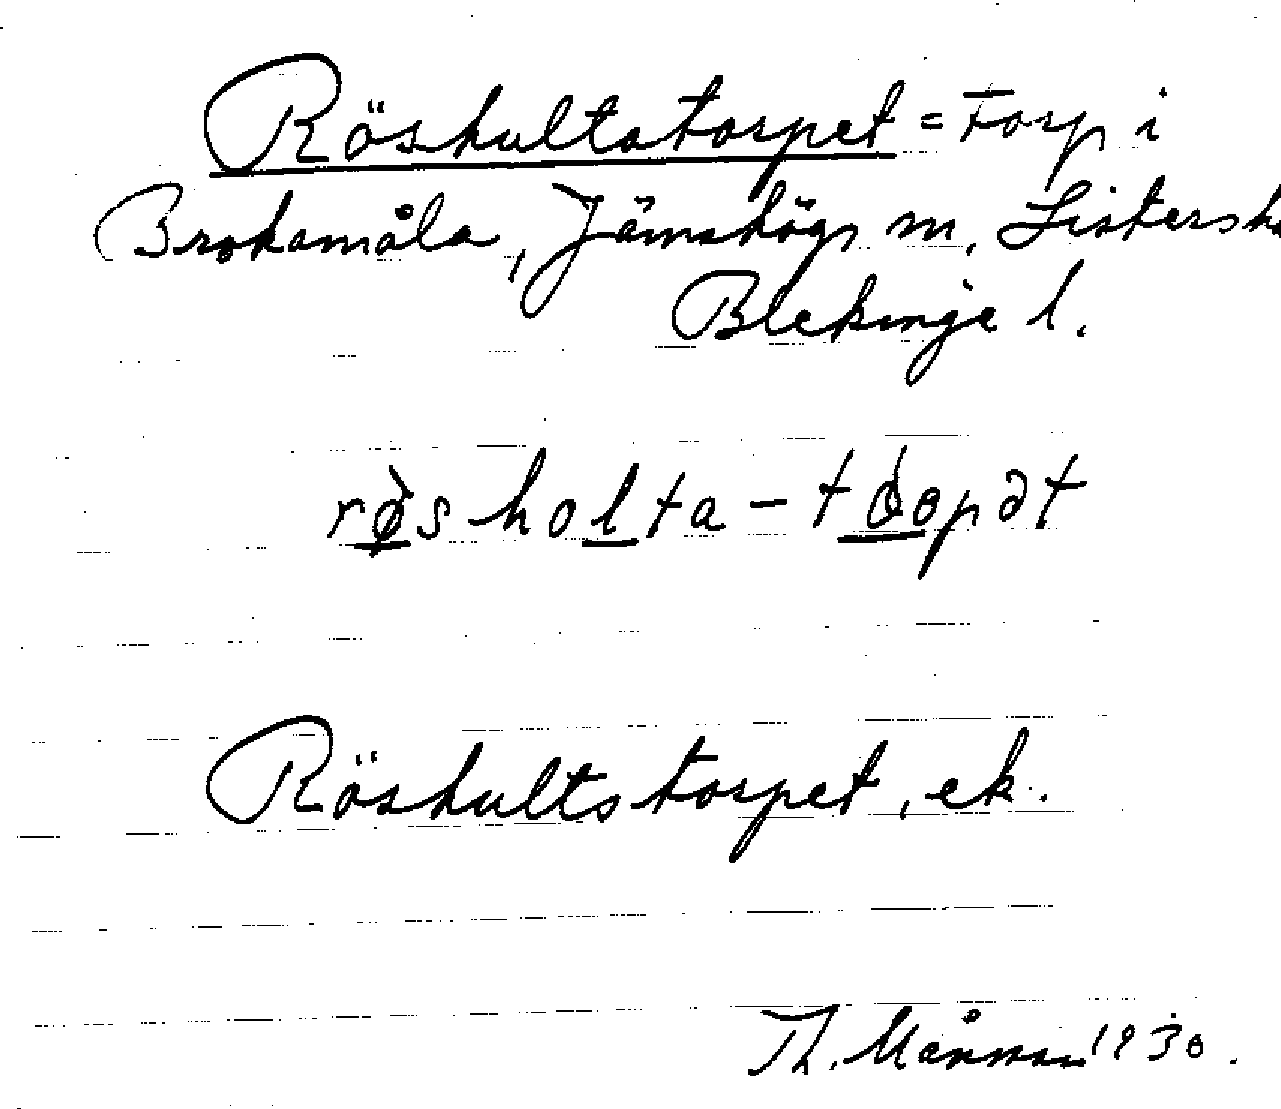 Röshultatorpet = Torp i
Brokamåla, Jämshögs m, Listersh
Blekinge l.
rø̀sholta-tóopət
Röshultstorpet, ek.
Th. Månsson 1930.